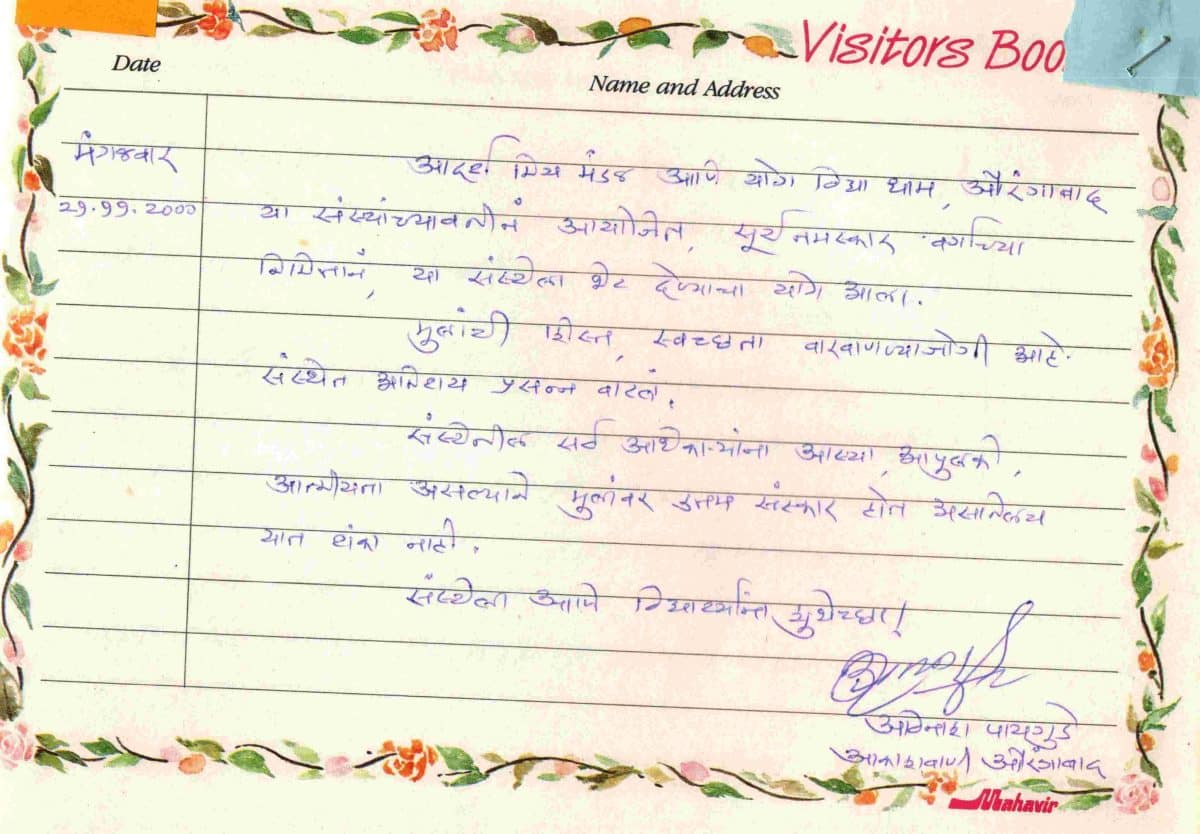 Visitors Boo
Date
Name and Address
मंगळवार
आदर्श मित्र मंडळ आणि योग विद्या धाम, औरंगाबाद
२१.११.२०००
या संस्थांच्यावतीनं आयोजित, सूर्यनमस्कार वर्गाच्या
निमित्तानं, या संस्थेला भेट देण्याचा योग आला.
मुलांची शिस्त, स्वच्छता वाखाणण्याजोगी आहे.
संस्थेत अतिशय प्रसन्न वाटलं.
संस्थेतील सर्व अधिकाऱ्यांना आस्था, आपुलकी,
आत्मीयता असल्याने मुलांवर उत्तम संस्कार होत असतीलच
यात शंका नाही.
संस्थेला आणि विद्यार्थ्यांना शुभेच्छा!
अविनाश पायगुडे
आकाशवाणी औरंगाबाद
Mahavir